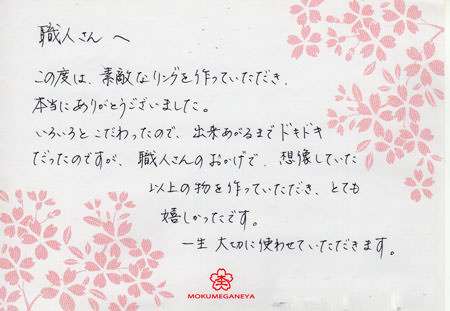 職人さんへ
この度は、素敵なリングを作っていただき、
本当にありがとうございました。
いろいろとこだわったので、出来あがるまでドキドキ
だったのですが、職人さんのおかげで、想像していた
以上の物を作っていただき、とても
嬉しかったです。
一生大切に使わせていただきます。
MOKUMEGANEYA